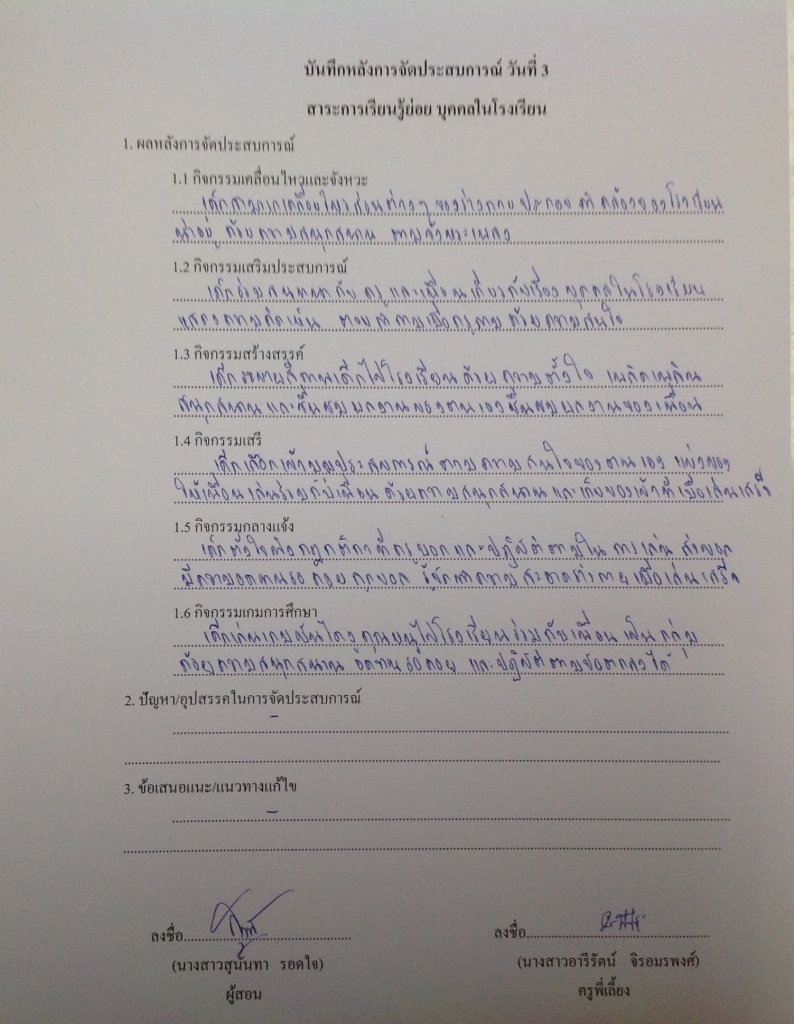 บันทึกหลังการจัดประสบการณ์ วันที่ 3
สาระการเรียนรู้ย่อย บุคคลในโรงเรียน
1. ผลหลังการจัดประสบการณ์
1.1 กิจกรรมเคลื่อนไหวและจังหวะ
เด็กสามารถเคลื่อนไหวส่วนต่างๆ ของร่างกายประกอบคำคล้องจองโรงเรียน
น่าอยู่ ด้วยความสนุกสนาน ตามจังหวะเพลง
1.2 กิจกรรมเสริมประสบการณ์
เด็กร่วมสนทนากับครูและเพื่อนเกี่ยวกับเรื่อง บุคคลในโรงเรียน
แสดงความคิดเห็น ตอบคำถามเมื่อครูถามด้วยความสนใจ
1.3 กิจกรรมสร้างสรรค์
เด็กระบายสีภาพเด็กไปโรงเรียนด้วยความตั้งใจ เพลิดเพลิน
สนุกสนานและชื่นชมผลงานของตนเองชื่นชมผลงานของเพื่อน
1.4 กิจกรรมเสรี
เด็กเลือกเข้ามุมประสบการณ์ตามความสนใจของตนเอง แบ่งของ
ให้เพื่อนเล่นร่วมกับเพื่อนด้วยความสนุกสนานและเก็บของเข้าที่เมื่อเล่นเสร็จ
1.5 กิจกรรมกลางแจ้ง
เด็กตั้งใจฟังกฎกติกาที่ครูบอกและปฏิบัติตามใน การเล่น ส่งบอล
มีความอดทนรอคอยลูกบอล รู้จักทำความสะอาดร่างกายเมื่อเล่นเสร็จ
1.6 กิจกรรมเกมการศึกษา
เด็กเล่นเกมบันไดงูคุณหนูไปโรงเรียนร่วมกับเพื่อนเป็นกลุ่ม
ด้วยความสนุกสนาน อดทนรอคอย และปฏิบัติตามข้อตกลงได้
2. ปัญหา/อุปสรรคในการจัดประสบการณ์
-
3. ข้อเสนอแนะ/แนวทางแก้ไข
-
ลงชื่อ
ลงชื่อ
(นางสาวสุนันทา รอดใจ)
(นางสาวอารีรัตน์ จิรอมรพงศ์)
ผู้สอน
ครูพี่เลี้ยง